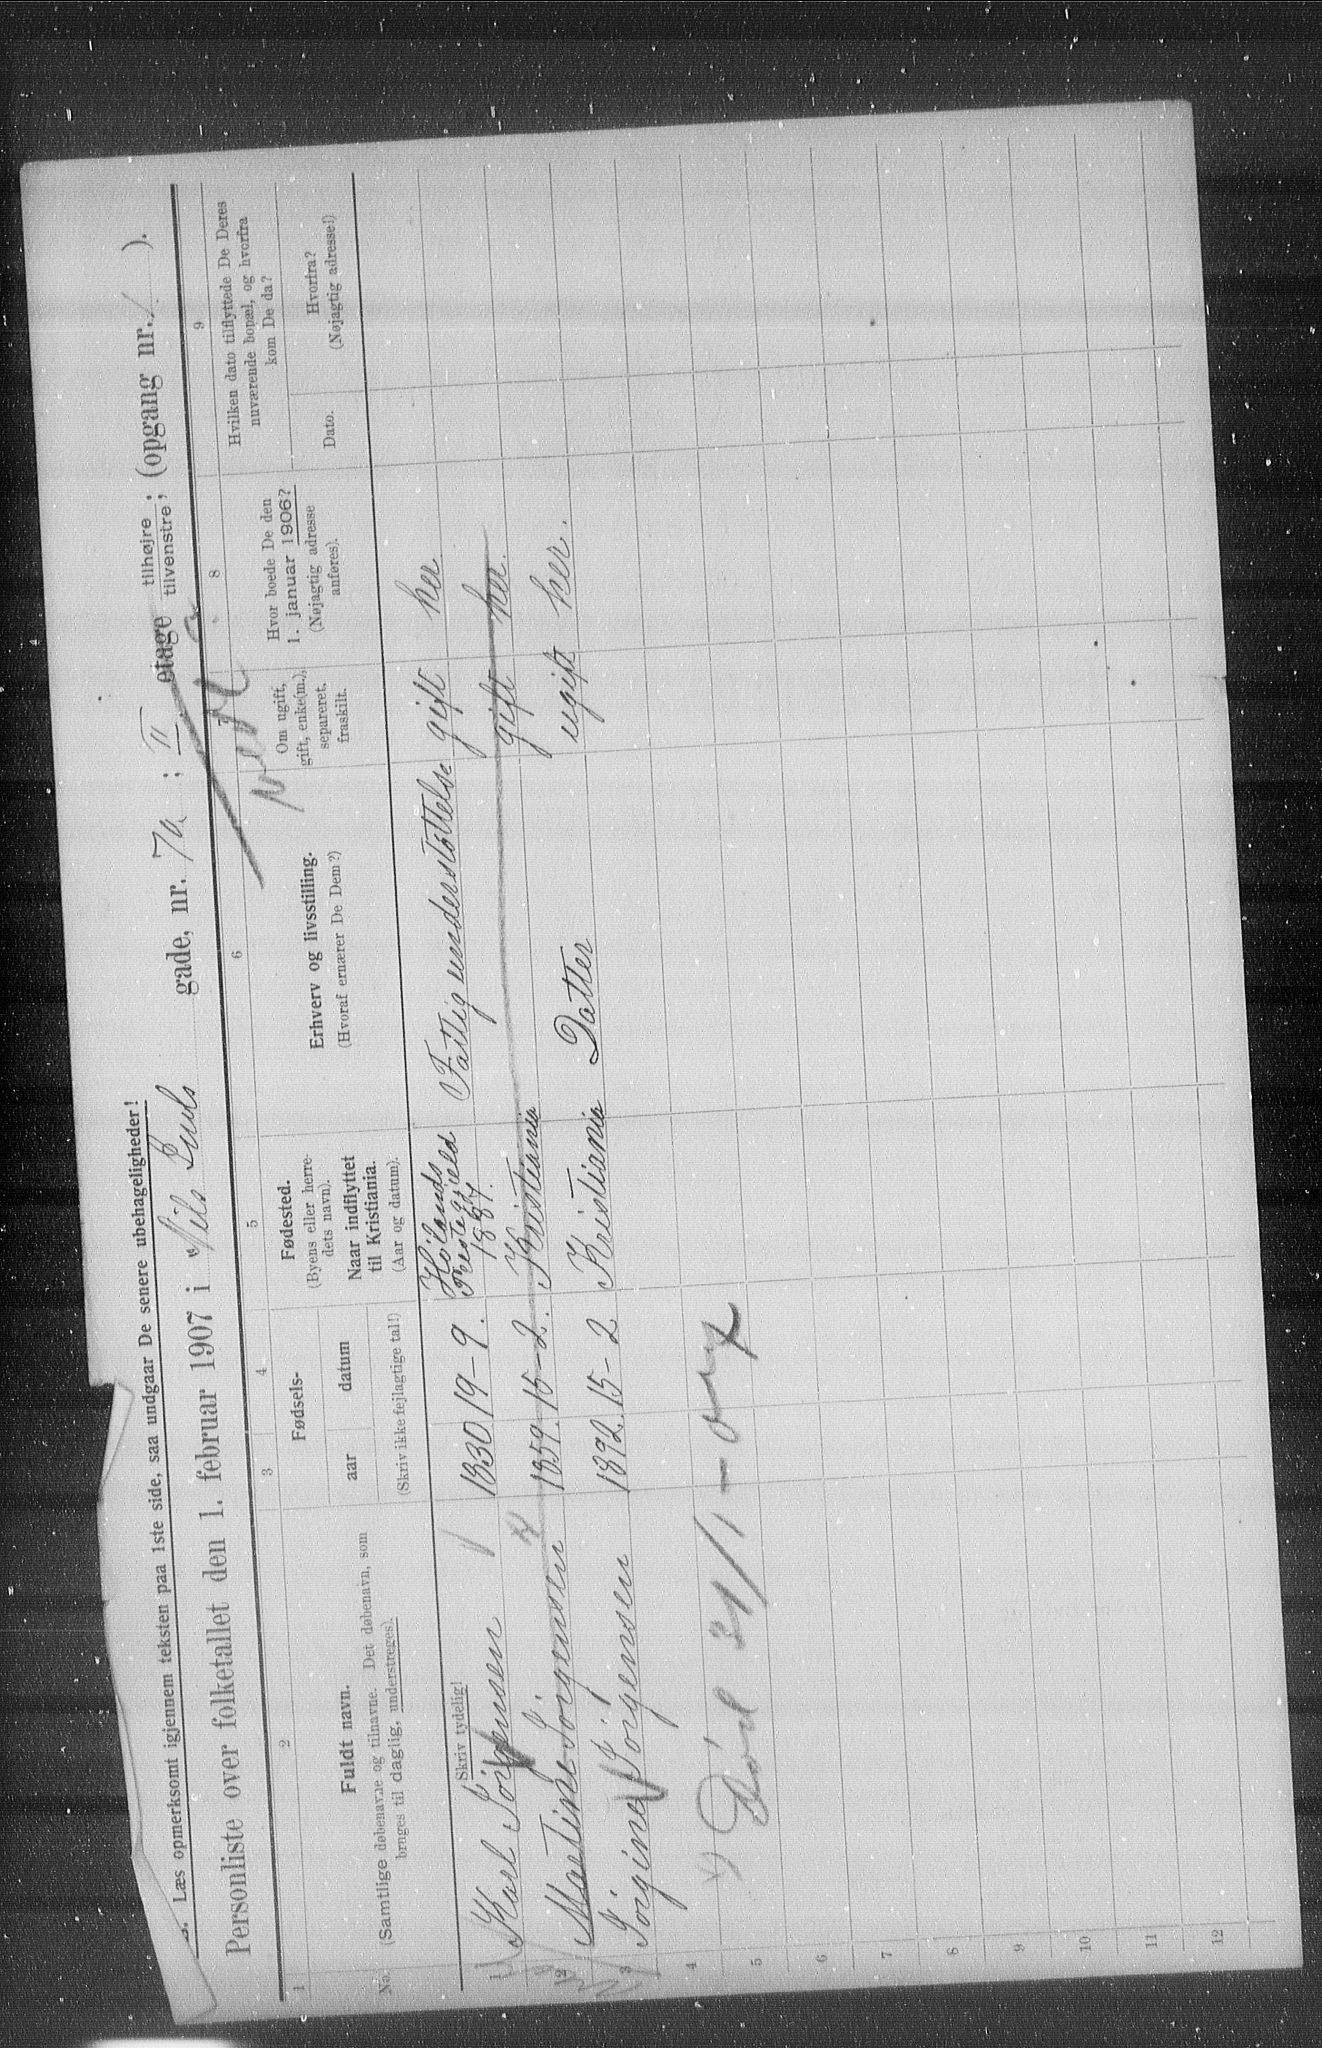 Læs opmerksomt igjennem teksten paa 1ste side, saa undgaar De senere ubehageligheder!
Personliste over folketallet den 1. februar 1907 i Nils Juuls gade, nr. 7a ; II etage tilhøjre ; tilvenstre ; (opgang nr. / ).
1 2 3 4 5 6 7 8 9
No.
Fuldt navn.
(Samtlige døbenavne og tilnavne. Det døbenavn, som
bruges til daglig, understreges).
Skriv tydelig!
Fødsels-
aar datum
(Skriv ikke fejlagtige tal!)
Fødested.
(Byens eller herre-
dets navn).
Naar indflyttet
til Kristiania.
(Aar og datum).
Erhverv og livsstilling.
(Hvoraf ernærer De Dem?)
Om ugift,
gift, enke(m.),
separeret,
fraskilt.
Hvor boede De den
1. januar 1906?
(Nøjagtig adresse
anføres).
Hvilken dato tilflyttede De Deres
nuværende bopæl, og hvorfra
kom De da?
Dato.
Hvorfra?
(Nøjagtig adresse!)
1 Karl Jörgensen 1830 19-9. Hölands Prestegjeld 1887. Fattigunderstöttelse gift her
2 Martine Jörgensen 1859. 15-2. Kristiania gift her.
3 Jörgine Jörgensen 1892. 15-2 Kristiania Datter ugift her.
4
5 Död 31/1
6
7
8
9
10
11
12